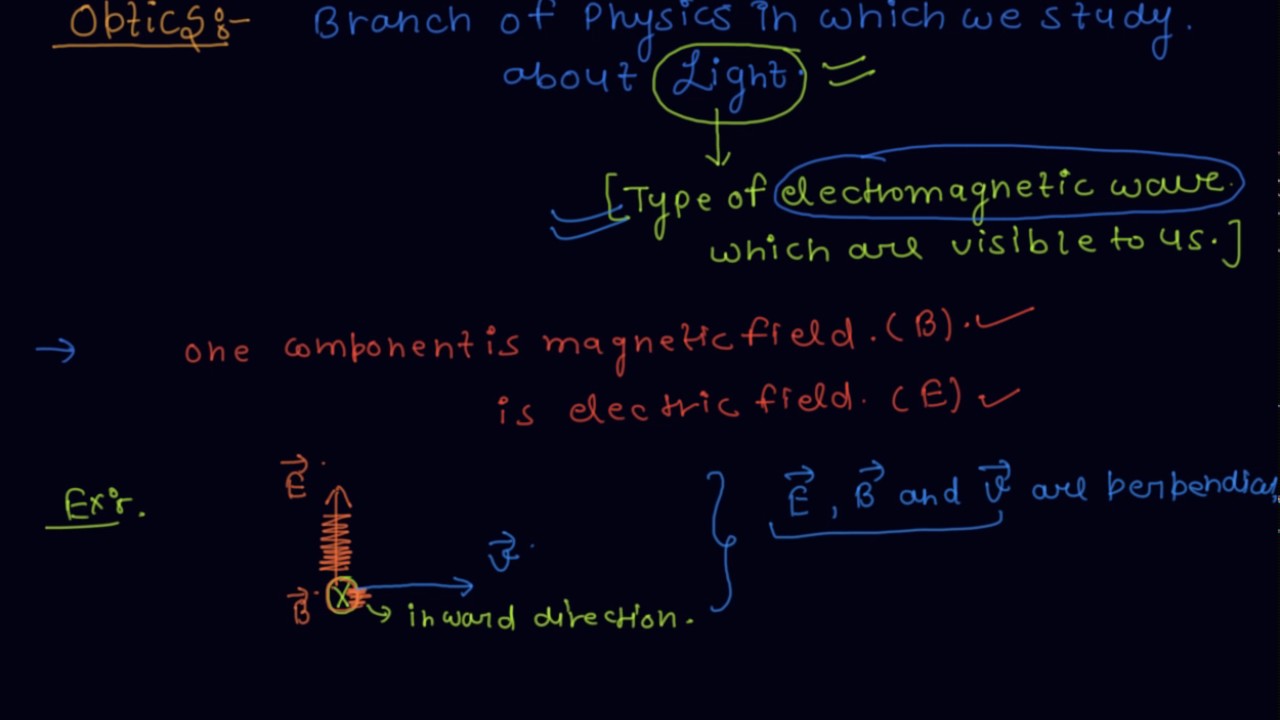 Optics:- Branch of Physics in which we study.
about Light.
[Type of electromagnetic wave.
which are visible to us.]
→ one component is magnetic field. (B). ✓
is electric field. (E) ✓
Ex:.
E
v
B
inward direction.
E, B and v are